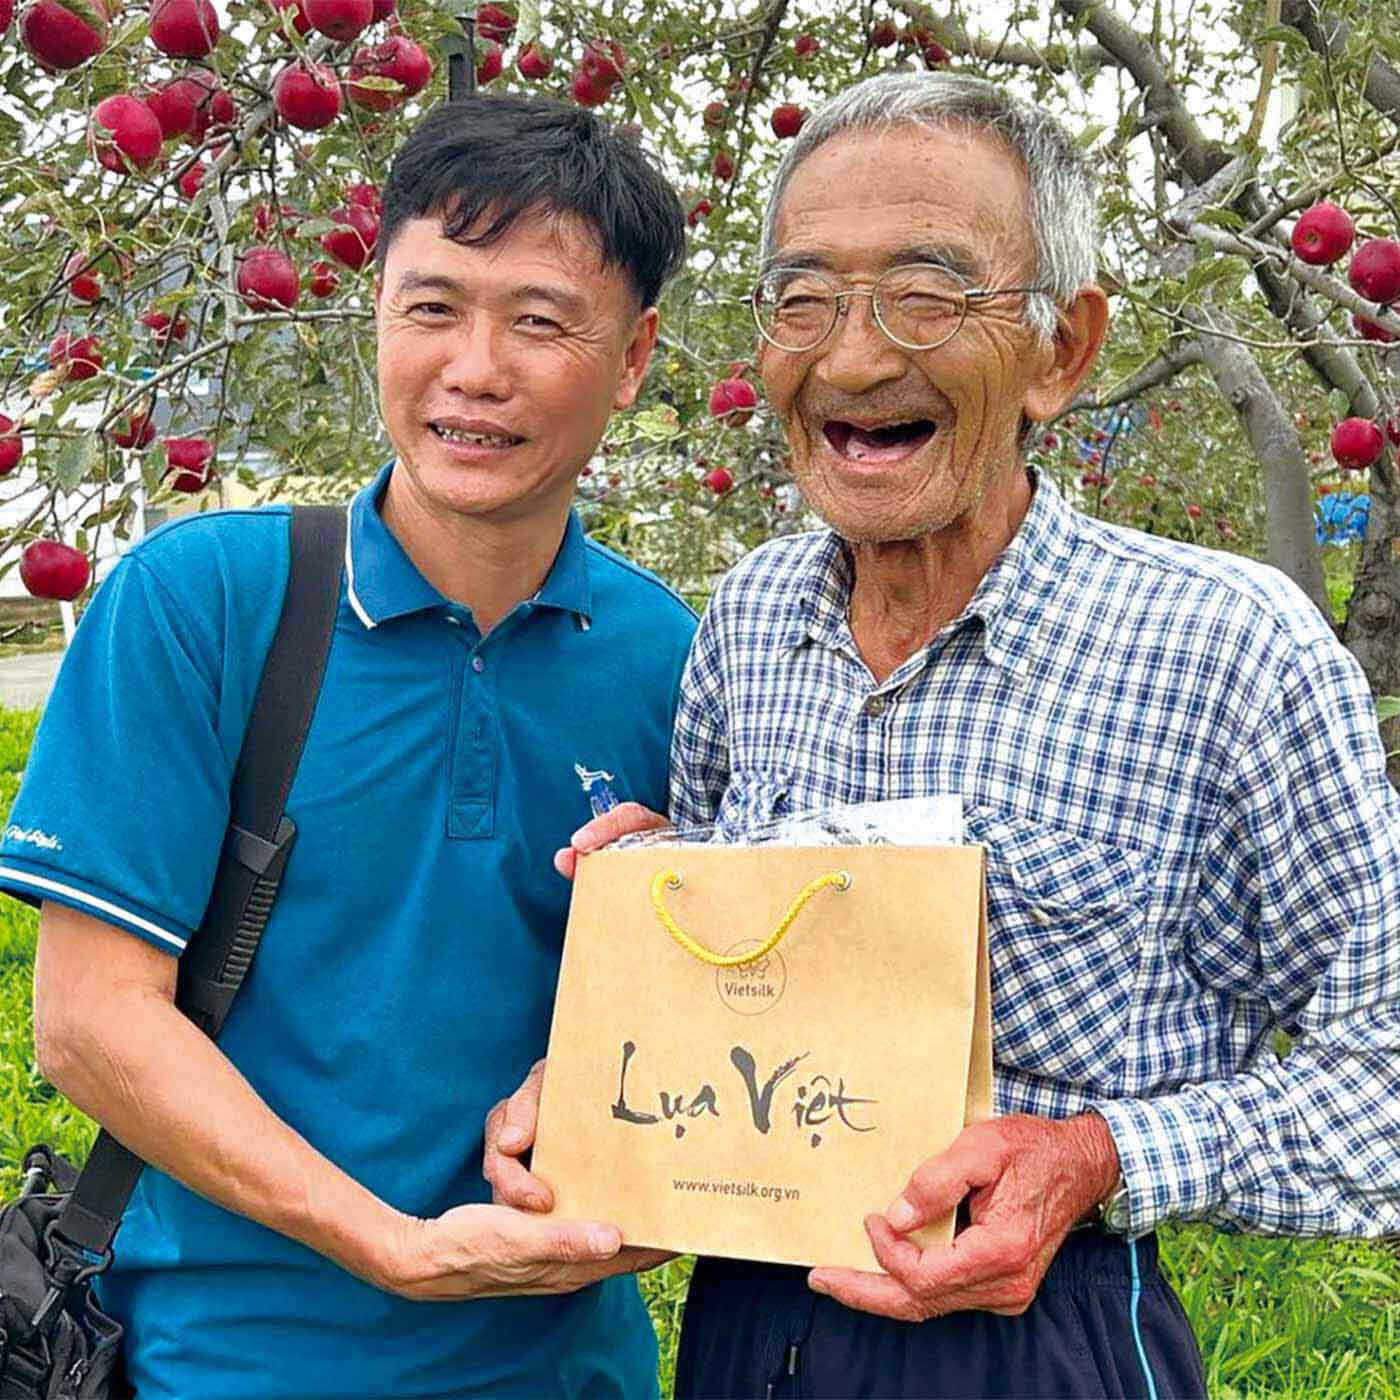 Vietsilk
Lụa Việt
www.vietsilk.org.vn